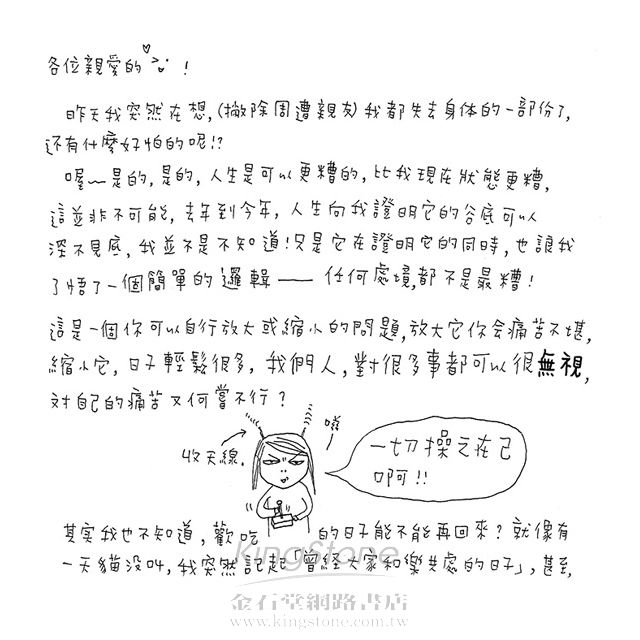 各位親愛的 !
昨天我突然在想,(撇除周遭親友)我都失去身体的一部份了,
还有什麼好怕的呢!?
喔~是的,是的,人生是可以更糟的,比我現在狀態更糟,
這並非不可能,去年到今年,人生向我證明它的谷底可以
深不見底,我並不是不知道!只是它在證明它的同時,也讓我
了悟了一個簡單的邏輯——任何處境,都不是最糟!
這是一個你可以自行放大或縮小的問題,放大它你会痛苦不堪,
縮小它,日子輕鬆很多,我們人,對很多事都可以很無視,
対自己的痛苦又何嘗不行?
收天線.
嗞
一切操之在己
啊!!
其実我也不知道,歡吃 的日子能不能再回來?就像有
一天貓没叫,我突然記起「曾经大家和樂共處的日子」,甚至,
KingStone
金石堂網路書店
www.kingstone.com.tw